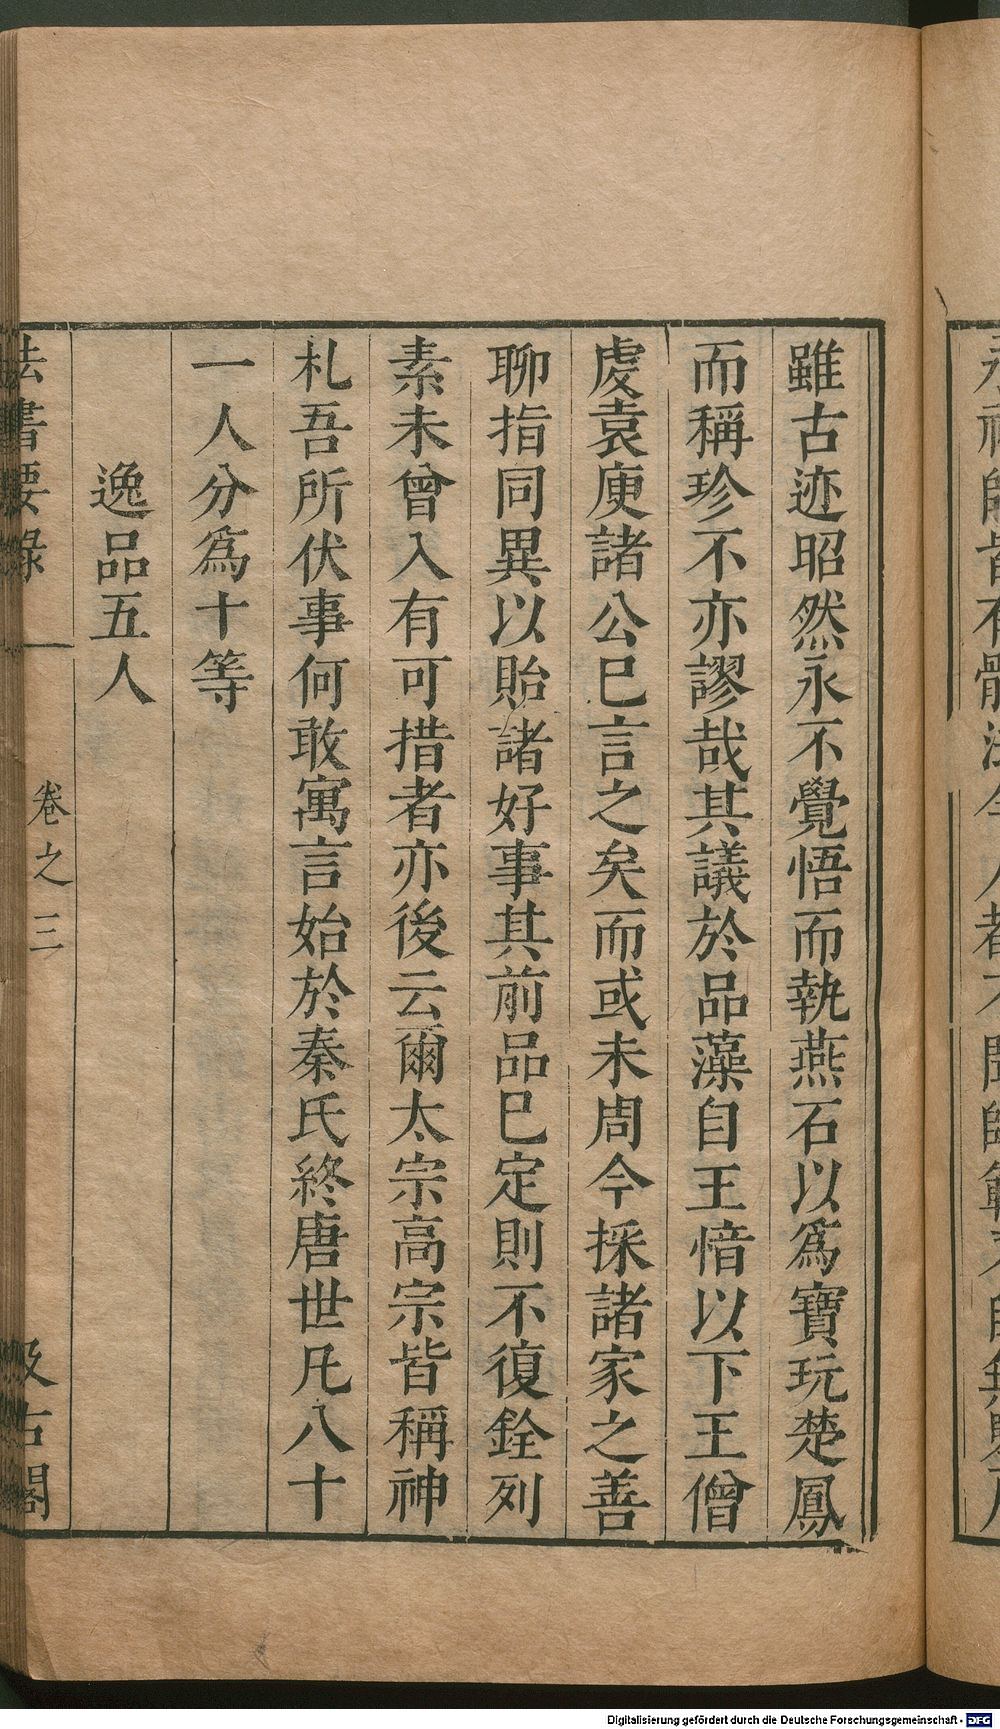 雖古迹昭然永不覺悟而執燕石以爲寶玩楚鳳
而稱珍不亦謬哉其議於品藻自王愔以下王僧
虔袁庾諸公已言之矣而或未周今採諸家之善
聊指同異以貽諸好事其前品已定則不復銓列
素未曾入有可措者亦後云爾太宗高宗皆稱神
札吾所伏事何敢寓言始於秦氏終唐世凡八十
一人分爲十等
逸品五人
法書要錄 卷之三 汲古閣
Digitalisierung gefördert durch die Deutsche Forschungsgemeinschaft - DFG